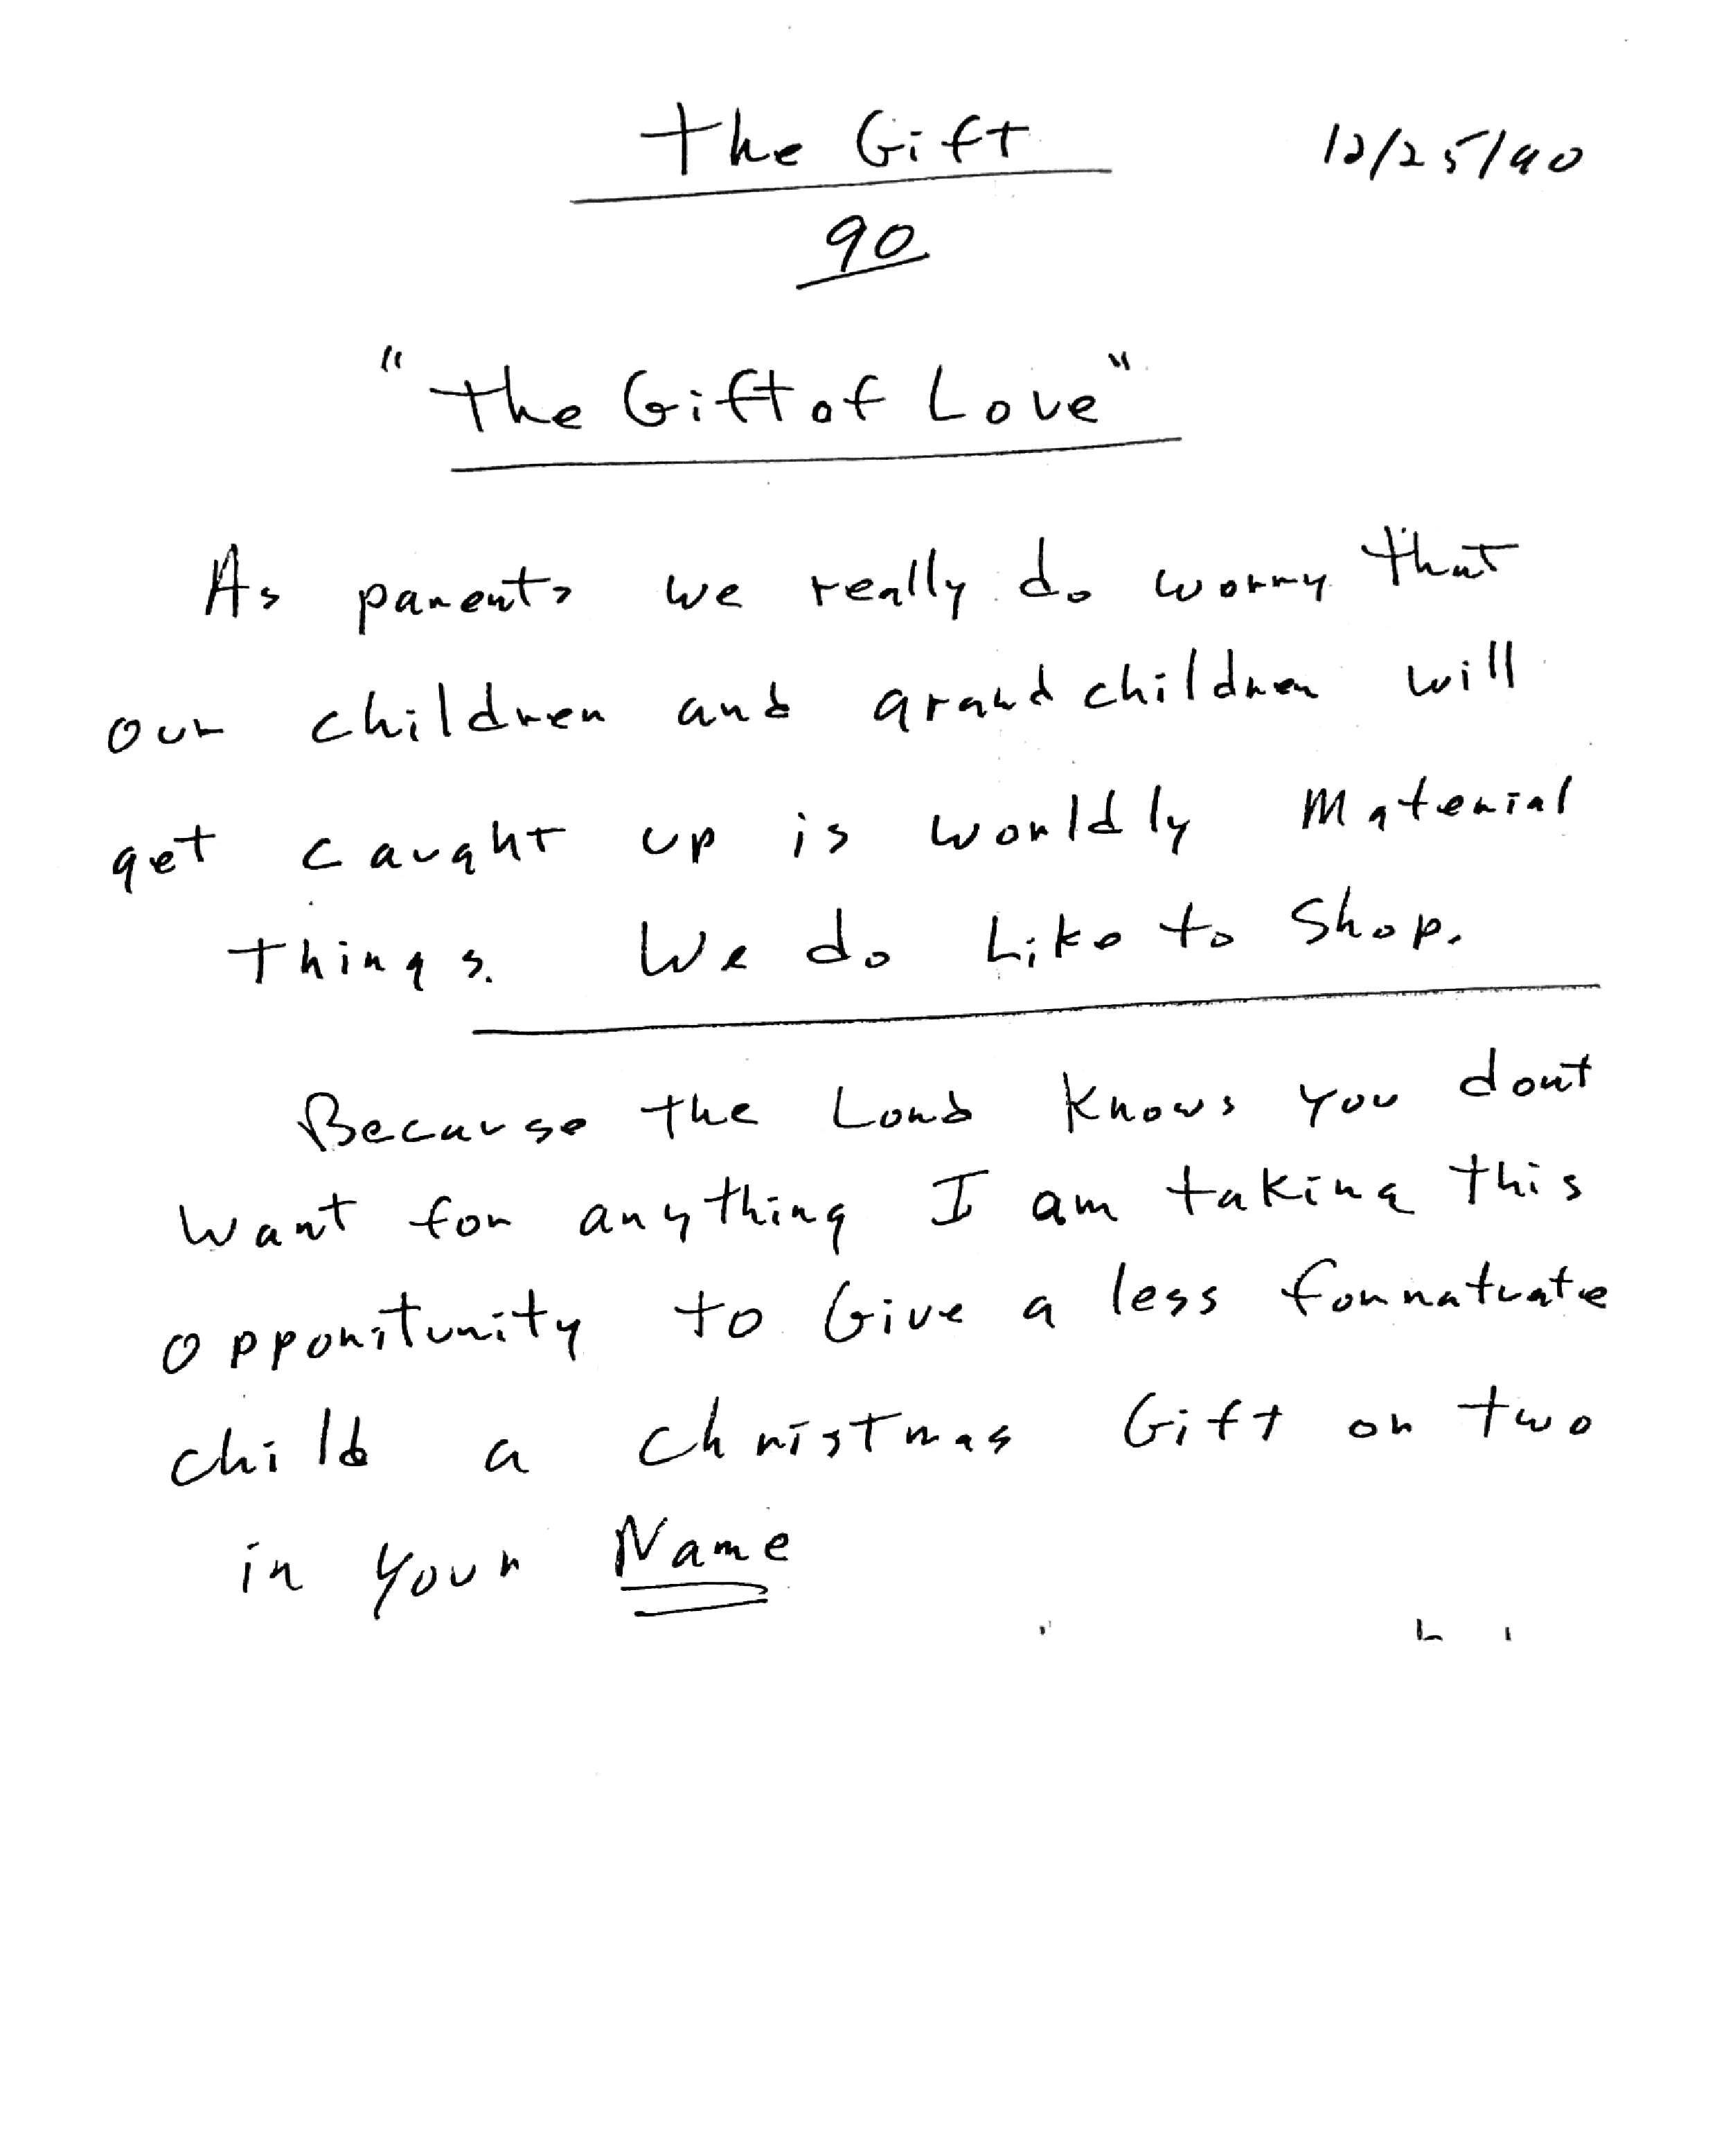 The Gift 12/25/90
90
"The Gift of Love"
As parents we really do worry that
our children and grandchildren will
get caught up is worldly Material
things. We do Like to Shop.
Because the Lord Knows you dont
want for anything I am taking this
opporitunity to Give a less fornatuate
child a Christmas Gift or two
in your Name